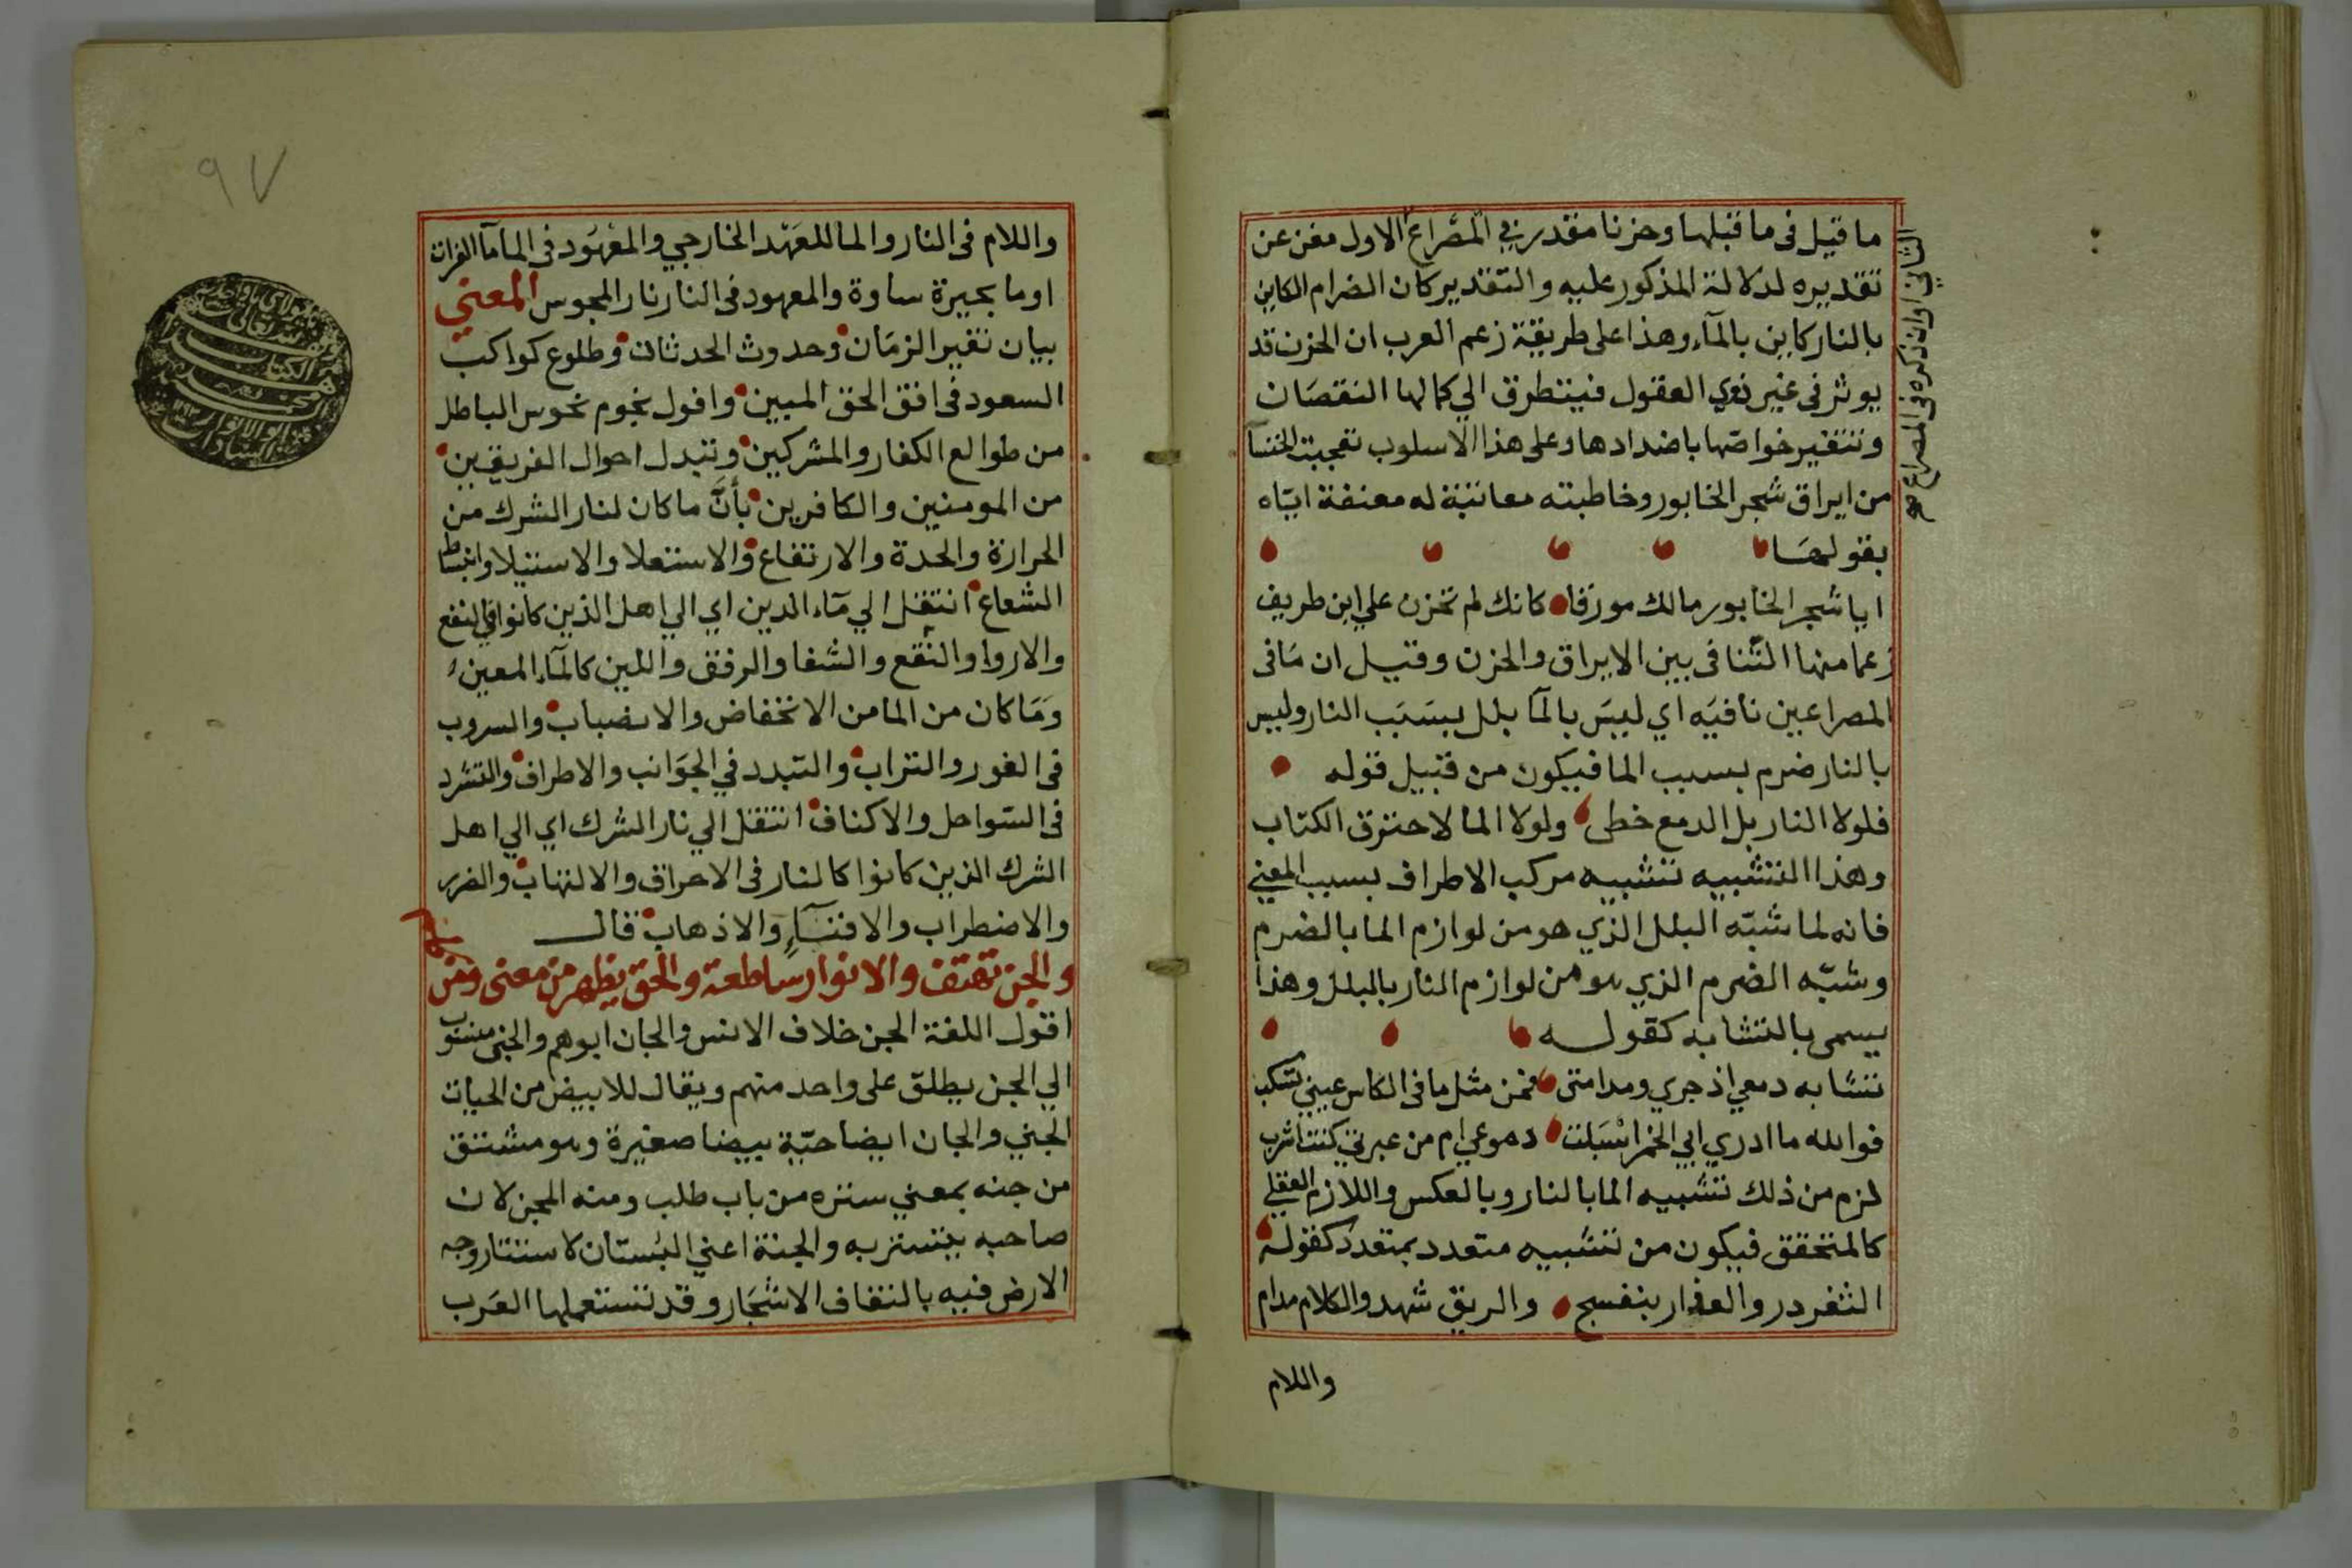 ما قيل فى ما قبلها وحزنا مقدر فى المصراع الاول مغن عن
تقديره لدلالة المذكور عليه والتقدير كان الضرام الكاين
بالنار كاين بالمآء وهذا على طريقة زعم العرب ان الحزن قد
يوثر في غير ذوي العقول فيتطرق الي كمالها النقصان
وتتغير خواصها باضدادها وعلى هذا الاسلوب تعجبت الخنسآ
من ايراق شجر الخابور وخاطبته معاتبة له معنفة اياه
بقولها
ايا شجر الخابور مالك مورقا كانك لم تحزن علي ابن طريف
زعما منها التنافى بين الايراق والحزن وقيل ان مَا فى
المصراعين نافيَه اي ليسَ بالمآ بلل بسَبَب النار وليس
بالنار ضرم بسبب الما فيكون من قبيل قوله
فلولا النار بل الدمع خطى ولولا الما لاحترق الكتاب
وهذا التشبيه تشبيه مركب الاطراف بسبب المعني
فانه لما شبّه البلل الذي هو من لوازم الما بالضرم
وشبّه الضرم الذي هو من لوازم النار بالبلل وهذا
يسمى بالتشابه كقوله
تشابه دمعي اذ جري ومدامتى فمن مثل ما فى الكاس عيني تسكب
فوالله ما ادري ابي الخمر اسبَلت دموعي ام من عبرتي كنت اشرب
لزم من ذلك تشبيه الما بالنار وبالعكس واللازم العقلي
كالمتحقق فيكون من تشبيه متعدد بمتعدد كقوله
الثغر در والعذار بنفسج والريق شهد والكلام مدام
واللام
الثاني وان ذكره فى المصراع صح
٩٧
واللام فى النار والما للعَهْد الخارجي والمعْهَود فى الما مآ الفرات
او ما بحيرة ساوة والمعهود فى النار نار المجوس المعني
بيان تغير الزمَان وحدوث الحدثان وطلوع كواكب
السعود فى افق الحق المبين وافول نجوم نحوس الباطل
من طوالع الكفار والمشركين وتبدل احوال الفريقين
من المومنين والكافرين بأنَّ ما كان لنار الشرك من
الحرارة والحدة والارتفاع والاستعلا والاستيلا وانبساط
الشعاع انتقل الي مآء الدين اي الي اهل الذين كانوا في النفع
والاروا والنقع والشفا والرفق واللين كالمآء المعين
وَمَا كان من الما من الانخفاض والانضباب والسروب
فى الغور والتراب والتبدد في الجوَانب والاطراف والتشرد
فى السّواحل والاكناف انتقل الي نار الشرك اي الي اهل
الشرك الذين كانوا كالنار فى الاحراق والالتهاب والضرر
والاضطراب والافنآءِ والاذهاب قال
والجن تهتف والانوار ساطعة والحق يظهر من معنى ومن كلم
اقول اللغة الجن خلاف الانس والجان ابوهم والجنى منسوب
الي الجن يطلق على واحد منهم ويقال للابيض من الحيات
الجني والجان ايضا حيّة بيضا صغيرة وهو مشتق
من جنه بمعني ستره من باب طلب ومنه المجن لان
صاحبه يتستر به والجنة اعني البُستان لاستتار وجه
الارض فيه بالتفاف الاشجَار وقد تستعملها العَرب